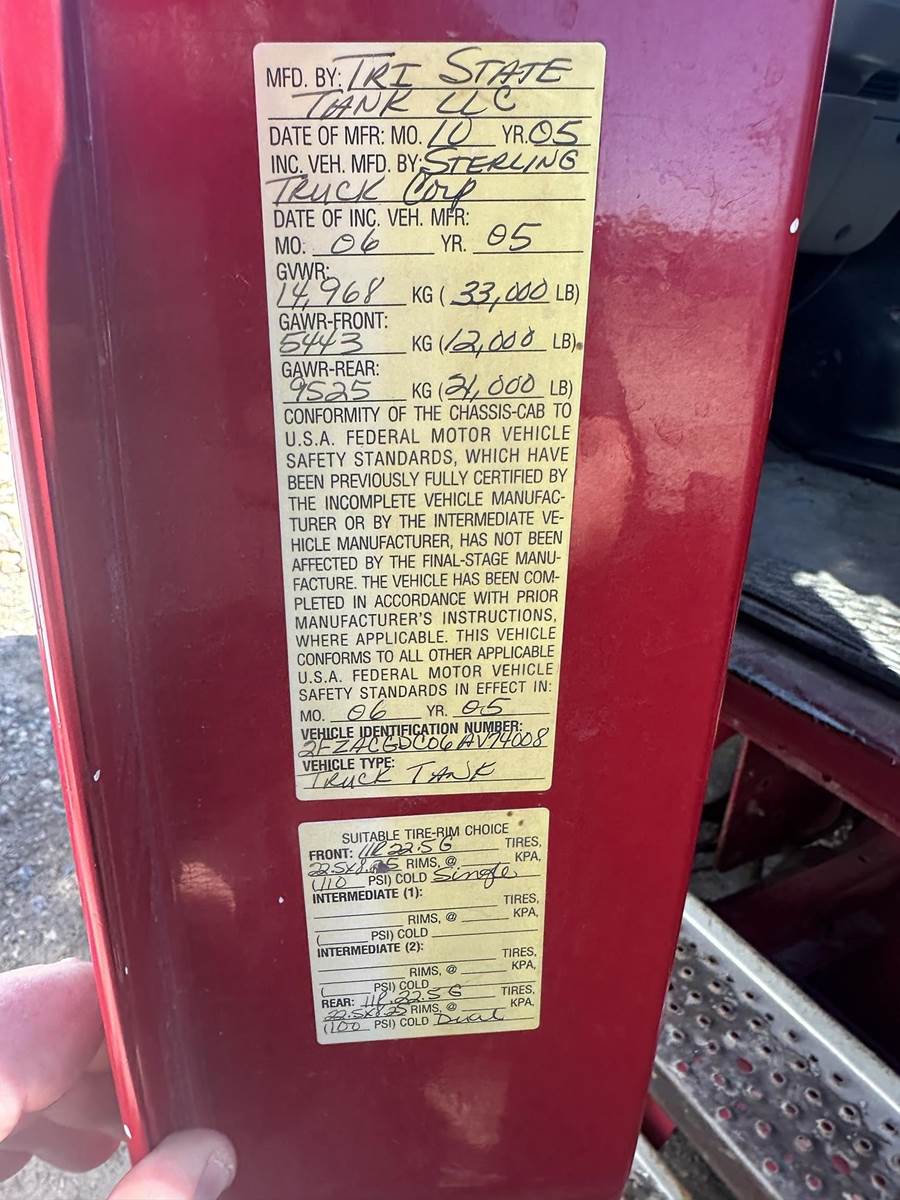 MFD. BY: TRI STATE
TANK LLC
DATE OF MFR: MO. 10 YR. 05
INC. VEH. MFD. BY: STERLING
TRUCK Corp
DATE OF INC. VEH. MFR:
MO. 06 YR. 05
GVWR:
14,968 KG ( 33,000 LB)
GAWR-FRONT:
5443 KG ( 12,000 LB)
GAWR-REAR:
9525 KG ( 21,000 LB)
CONFORMITY OF THE CHASSIS-CAB TO
U.S.A. FEDERAL MOTOR VEHICLE
SAFETY STANDARDS, WHICH HAVE
BEEN PREVIOUSLY FULLY CERTIFIED BY
THE INCOMPLETE VEHICLE MANUFAC-
TURER OR BY THE INTERMEDIATE VE-
HICLE MANUFACTURER, HAS NOT BEEN
AFFECTED BY THE FINAL-STAGE MANU-
FACTURE. THE VEHICLE HAS BEEN COM-
PLETED IN ACCORDANCE WITH PRIOR
MANUFACTURER'S INSTRUCTIONS,
WHERE APPLICABLE. THIS VEHICLE
CONFORMS TO ALL OTHER APPLICABLE
U.S.A. FEDERAL MOTOR VEHICLE
SAFETY STANDARDS IN EFFECT IN:
MO. 06 YR. 05
VEHICLE IDENTIFICATION NUMBER:
2FZACGDC06AV74008
VEHICLE TYPE:
TRUCK TANK
SUITABLE TIRE-RIM CHOICE
FRONT: 11R 22.5 G TIRES,
22.5x8.25 RIMS, @ KPA,
(110 PSI) COLD Single
INTERMEDIATE (1):
TIRES,
RIMS, @ KPA,
( PSI) COLD
INTERMEDIATE (2):
TIRES,
RIMS, @ KPA,
( PSI) COLD
REAR: 11R 22.5 G TIRES,
22.5x8.25 RIMS, @ KPA,
(100 PSI) COLD Dual